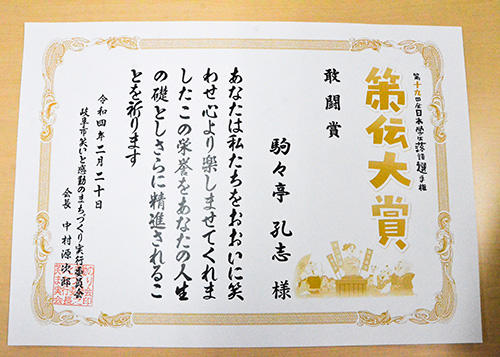 第十九回全日本学生落語選手権
策伝大賞
敢闘賞
駒々亭 孔志 様
あなたは私たちをおおいに笑
わせ心より楽しませてくれま
したこの栄誉をあなたの人生
の礎としさらに精進されるこ
とを祈ります
令和四年二月二十日
岐阜市笑いと感動のまちづくり実行委員会
会長 中村源次郎